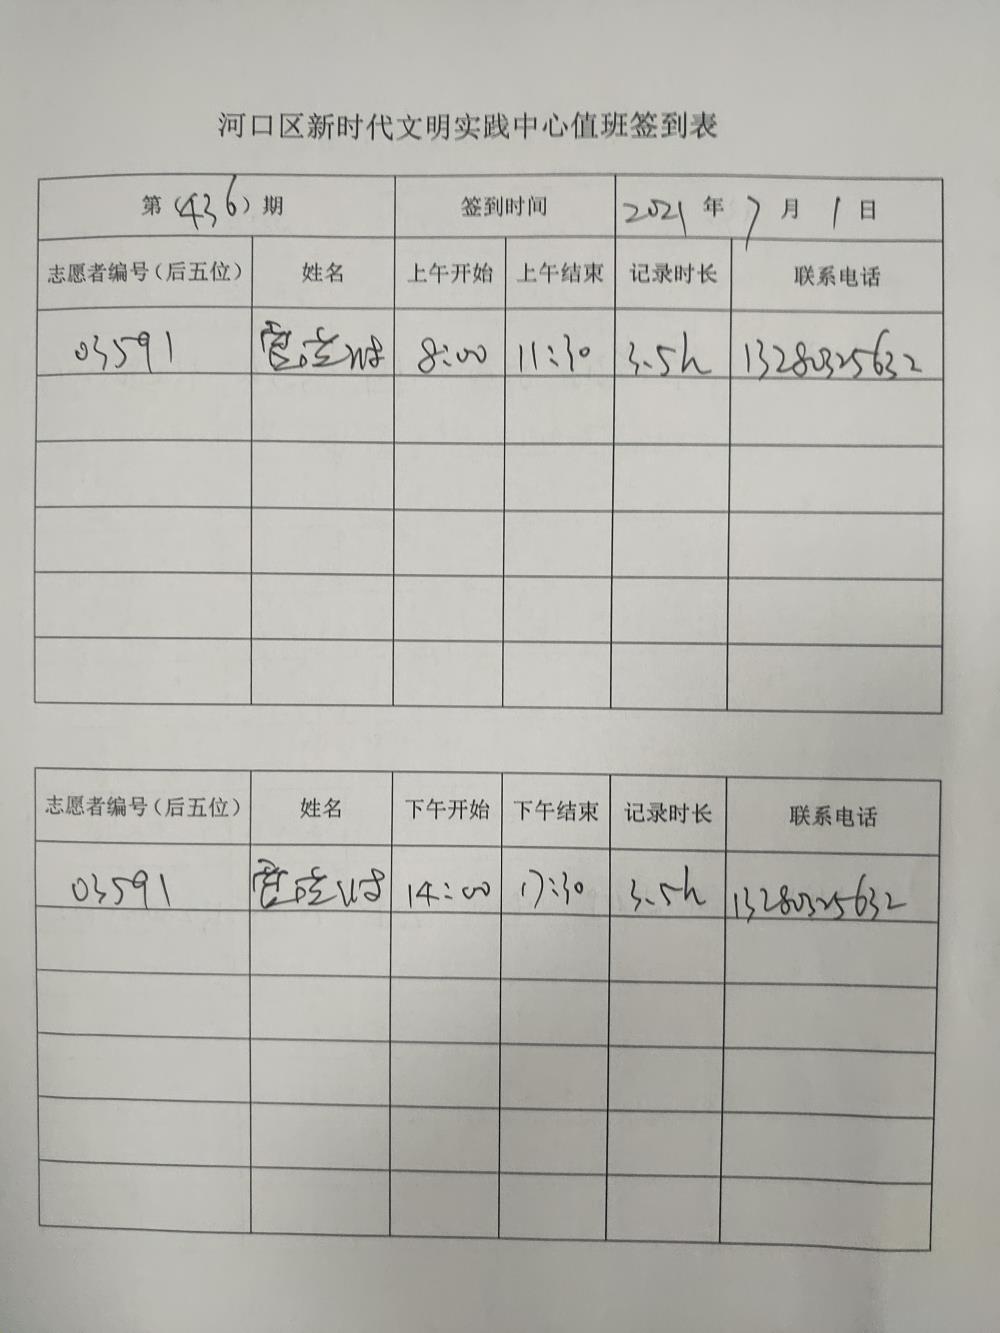 河口区新时代文明实践中心值班签到表
第(436)期 签到时间 2021年7月1日
志愿者编号(后五位) 姓名 上午开始 上午结束 记录时长 联系电话
03591 8:00 11:30 3.5h 13280325632
志愿者编号(后五位) 姓名 下午开始 下午结束 记录时长 联系电话
03591 14:00 17:30 3.5h 13280325632